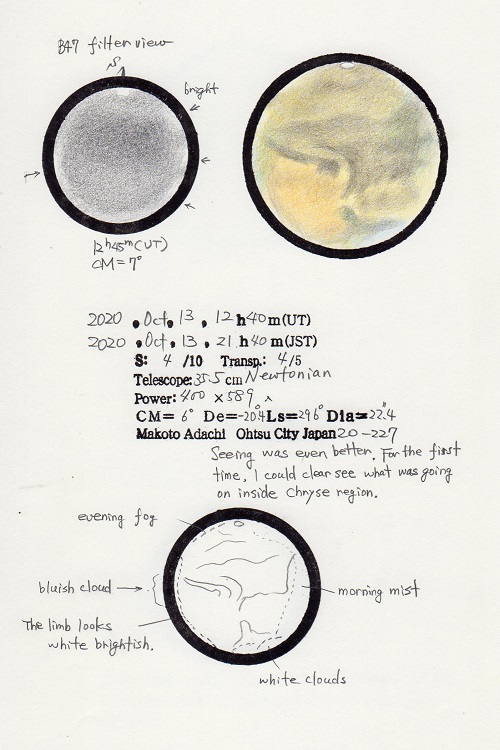 B47 filter view
S
bright
12h45m(UT)
CM=7°
2020 . Oct. 13 . 12h40m(UT)
2020 . Oct. 13 . 21h40m(JST)
S: 4 /10 Transp.: 4/5
Telescope: 35.5 cm Newtonian
Power: 400 × 589 ×
CM= 6° De=-20.4° Ls=296° Dia=22".4
Makoto Adachi Ohtsu City Japan 20-227
Seeing was even better. For the first
time, I could clear see what was going
on inside Chryse region.
evening fog
bluish cloud
morning mist
The limb looks
white brightish.
white clouds